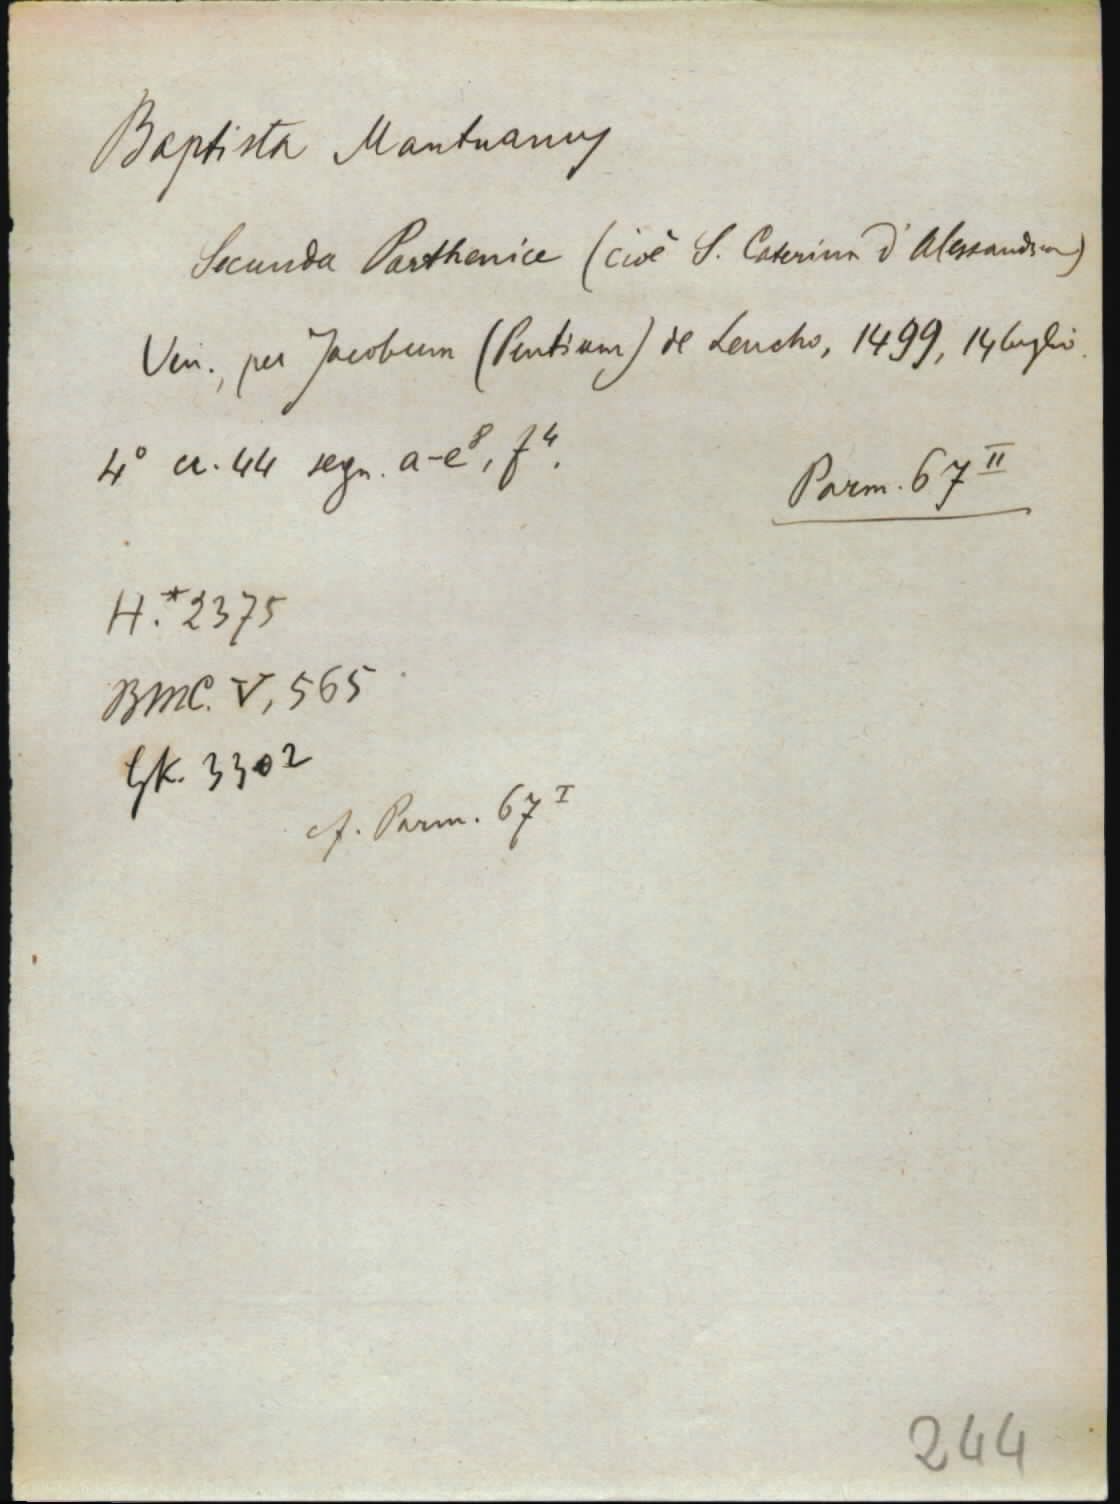 Baptista Mantuanus
Secunda Parthenice (cioè S. Caterina d'Alessandria)
Ven., per Jacobum (Pentium) de Leucho, 1499, 14 luglio.
4° cc. 44 segn. a-e⁸, f⁴.
Parm. 67 II
H.*2375
BMC. V, 565
GK. 3302
cf. Parm. 67 I
244